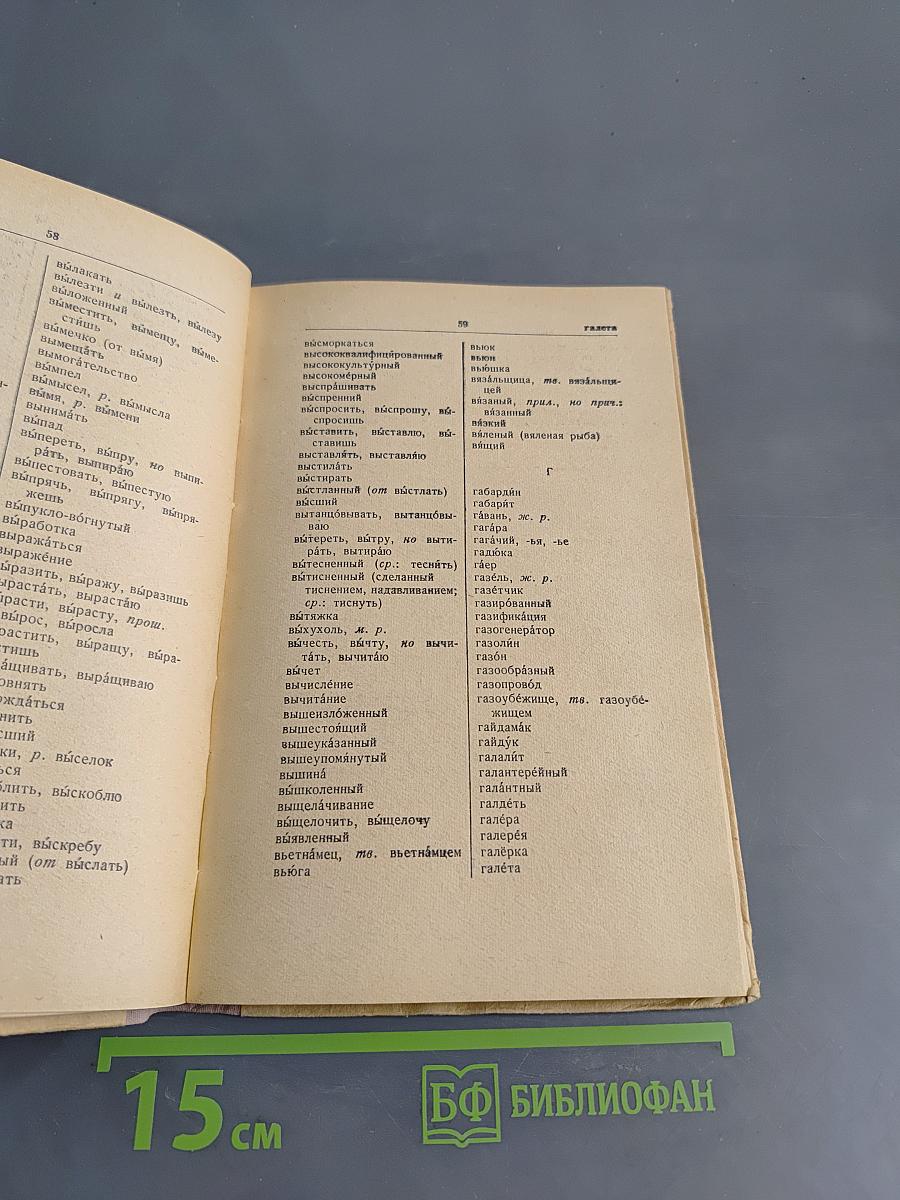 58
вы́лакать
вы́лезти и вы́лезть, вы́лезу
вы́ложенный
вы́местить, вы́мещу, вы́ме-
сти́шь
вы́мечко (от вы́мя)
вымеща́ть
вымога́тельство
вы́мпел
вы́мысел, р. вы́мысла
вы́мя, р. вы́мени
вынима́ть
вы́пад
вы́переть, вы́пру, но выпи-
ра́ть, выпира́ю
вы́пестовать, вы́пестую
вы́прячь, вы́прягу, вы́пря-
жешь
вы́пукло-во́гнутый
вы́работка
выража́ться
выраже́ние
вы́разить, вы́ражу, вы́разишь
выраста́ть, выраста́ю
вы́расти, вы́расту, прош.
вы́рос, вы́росла
растить, вы́ращу, вы́ра-
стишь
ащивать, выра́щиваю
овнять
ожда́ться
нить
сший
ки, р. вы́селок
ься
блить, вы́скоблю
ить
ка
ти, вы́скребу
ый (от вы́слать)
ать
59
галета
вы́сморкаться
высококвалифици́рованный
высококульту́рный
высокоме́рный
выспра́шивать
вы́спренний
вы́спросить, вы́спрошу, вы́-
спросишь
вы́ставить, вы́ставлю, вы́-
ставишь
выставля́ть, выставля́ю
выстила́ть
вы́стирать
вы́стланный (от вы́стлать)
вы́сший
вытанцо́вывать, вытанцо́вы-
ваю
вы́тереть, вы́тру, но выти-
ра́ть, вытира́ю
вы́тесненный (ср.: тесни́ть)
вы́тисненный (сделанный
тиснением, надавливанием;
ср.: тиснуть)
вы́тяжка
вы́хухоль, м. р.
вы́честь, вы́чту, но вычи-
та́ть, вычита́ю
вы́чет
вычисле́ние
вычита́ние
вышеизло́женный
вышестоя́щий
вышеука́занный
вышеупомя́нутый
вышина́
вы́школенный
выщела́чивание
вы́щелочить, вы́щелочу
вы́явленный
вьетна́мец, тв. вьетна́мцем
вью́га
вьюк
вьюн
вью́шка
вяза́льщица, тв. вяза́льщи-
цей
вя́заный, прил., но прич.:
вя́занный
вя́зкий
вя́леный (вяленая рыба)
вя́щий
Г
габарди́н
габари́т
га́вань, ж. р.
гага́ра
гага́чий, -ья, -ье
гадю́ка
га́ер
газе́ль, ж. р.
газе́тчик
газиро́ванный
газифика́ция
газогенера́тор
газоли́н
газо́н
газообра́зный
газопрово́д
газоубе́жище, тв. газоубе́-
жищем
гайдама́к
гайду́к
галали́т
галантере́йный
гала́нтный
галде́ть
гале́ра
галере́я
галёрка
гале́та
15 см
БФ БИБЛИОФАН